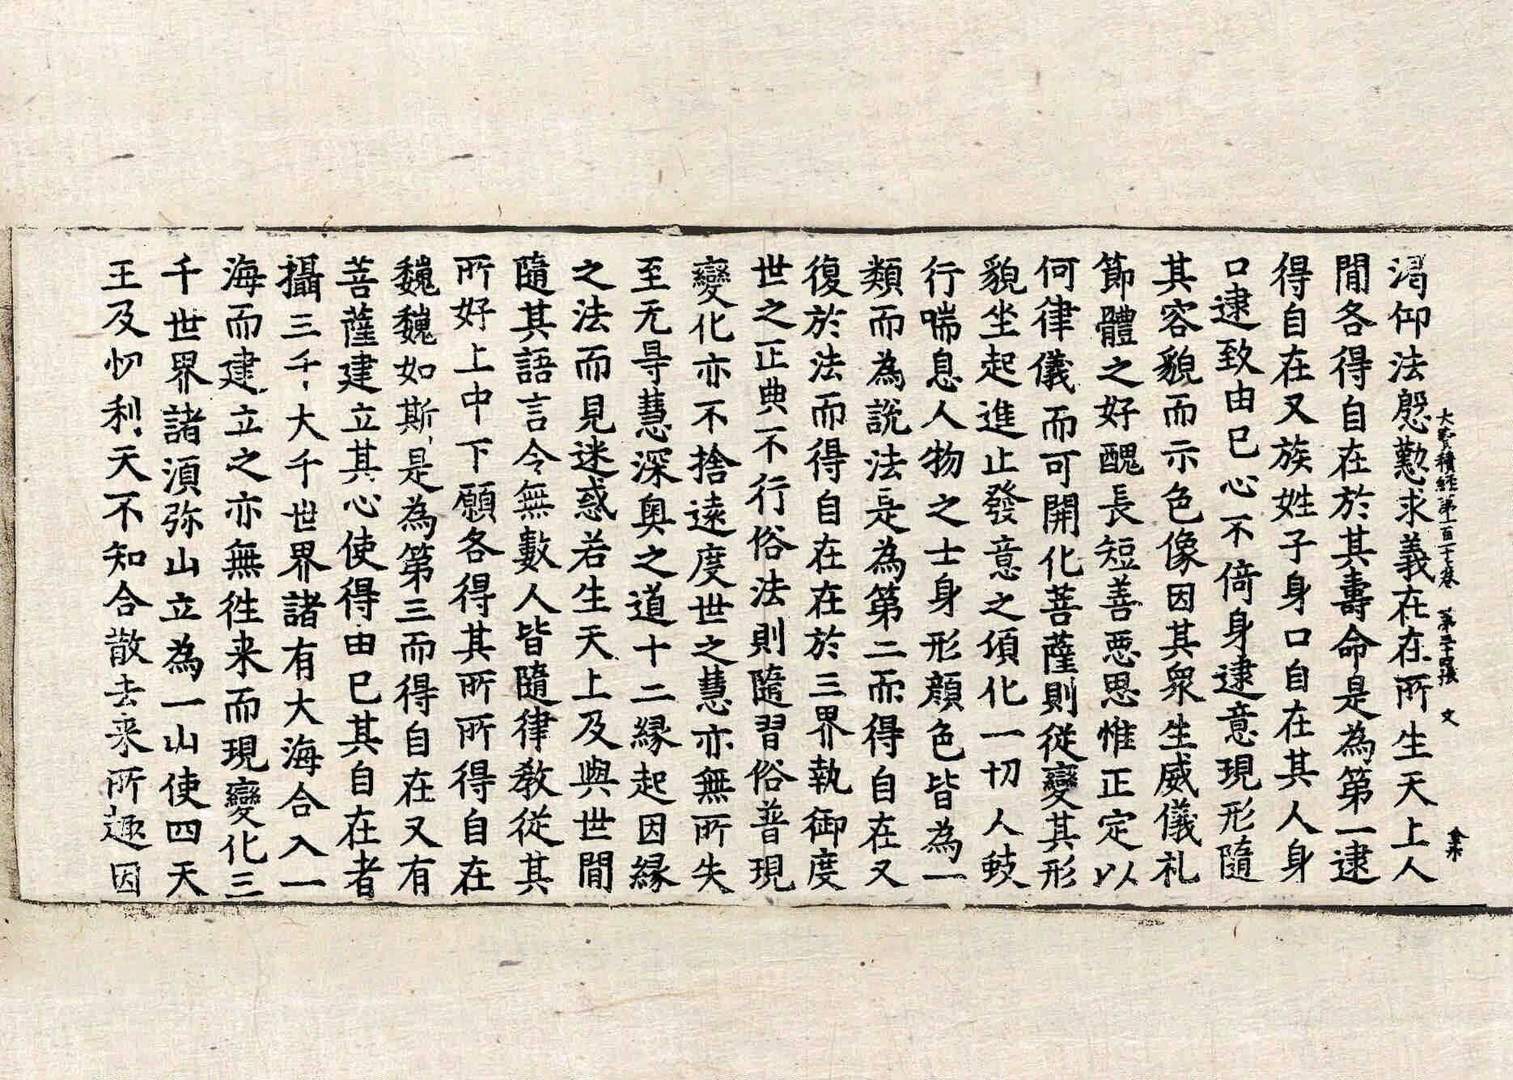 大寶積經第一百一十七卷　第三十張　文
渴仰法慇懃求義在在所生天上人
閒各得自在於其壽命是為第一逮
得自在又族姓子身口自在其人身
口逮致由已心不倚身逮意現形隨
其容貌而示色像因其衆生威儀礼
節體之好醜長短善惡思惟正定以
何律儀而可開化菩薩則從變其形
貌坐起進止發意之頃化一切人蚑
行喘息人物之士身形顏色皆為一
類而為說法是為第二而得自在又
復於法而得自在在於三界執御度
世之正典不行俗法則隨習俗普現
變化亦不捨遠度世之慧亦無所失
至无㝵慧深奧之道十二緣起因緣
之法而見迷惑若生天上及與世閒
隨其語言令無數人皆隨律教從其
所好上中下願各得其所所得自在
巍巍如斯是為第三而得自在又有
菩薩建立其心使得由已其自在者
攝三千大千世界諸有大海合入一
海而建立之亦無徃来而現變化三
千世界諸湏弥山立為一山使四天
王及忉利天不知合散去来所趣因